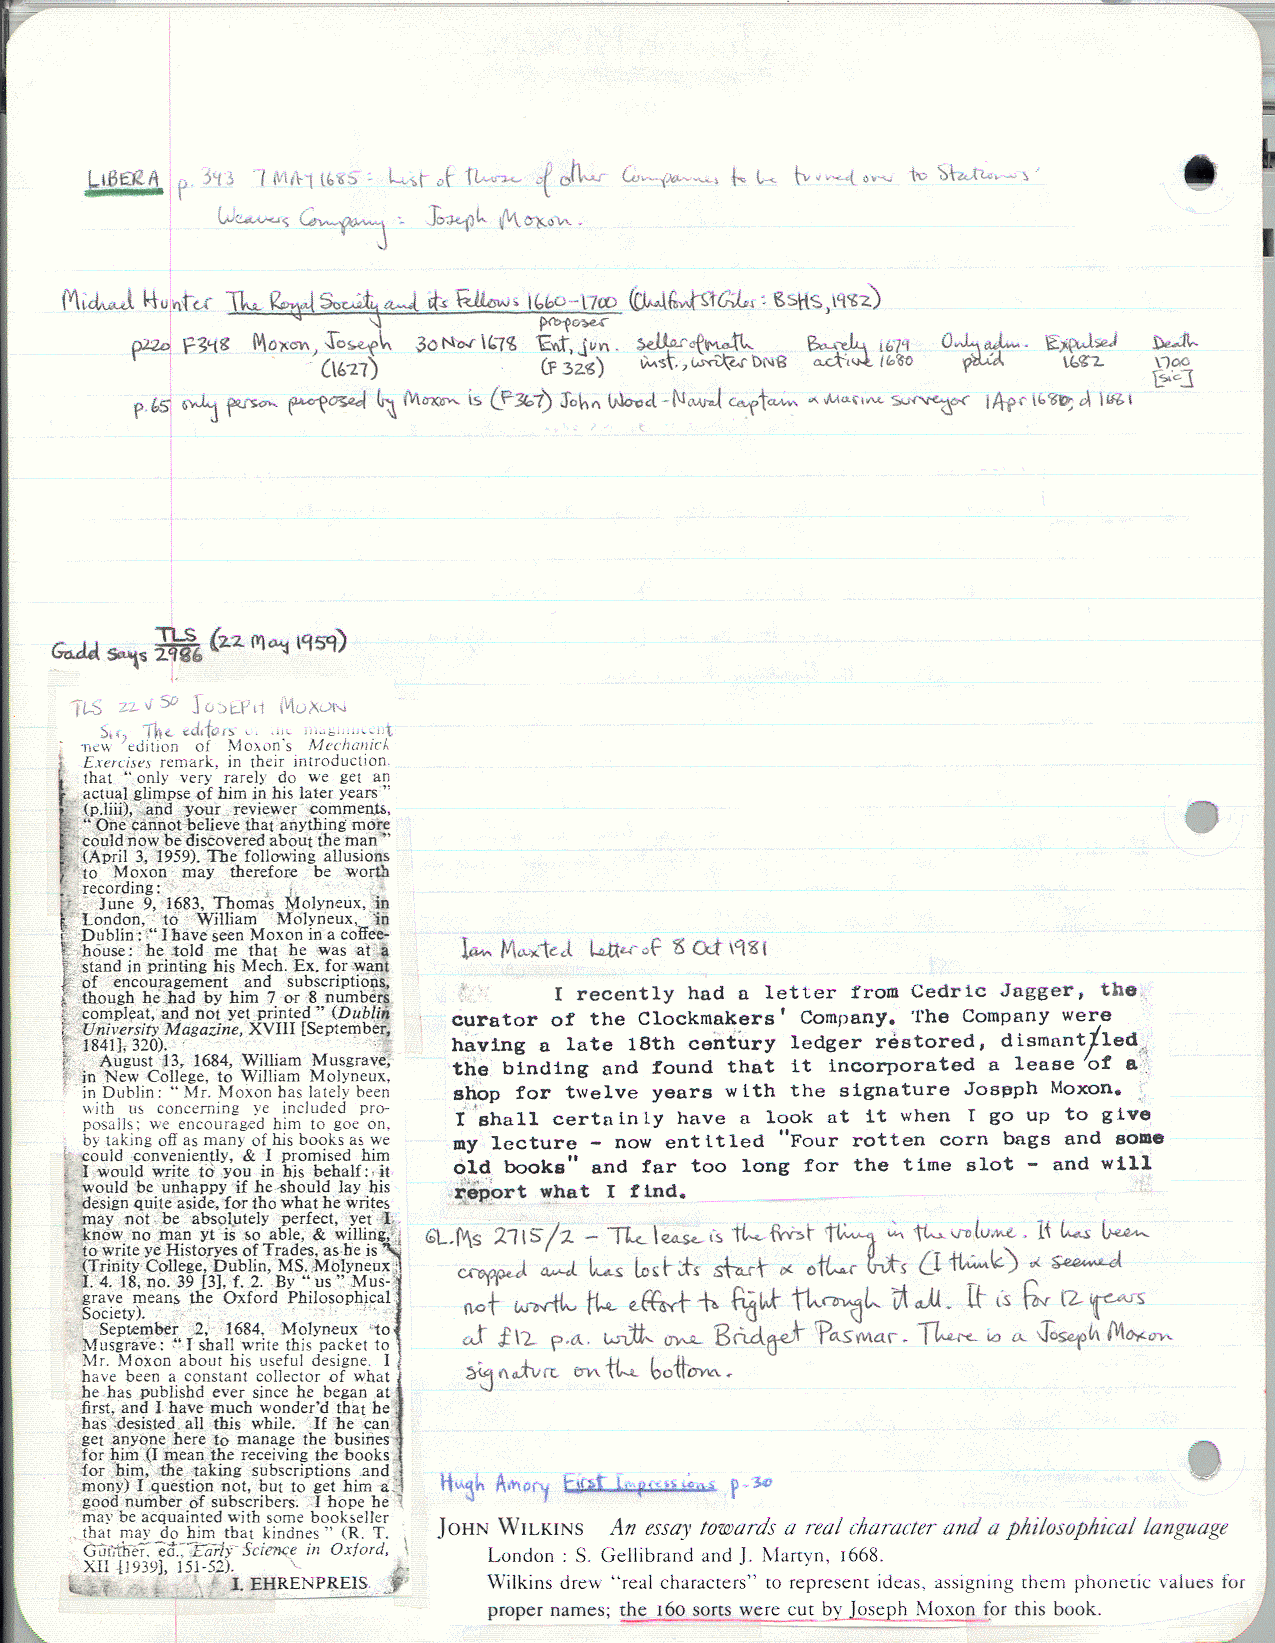 LIBERA p. 343 7 MAY 1685: List of those of other Companies to be turned over to Stationers'
Weavers Company: Joseph Moxon.
Michael Hunter The Royal Society and its Fellows 1660-1700 (Chalfont St Giles: BSHS, 1982)
proposer
p220 F348 Moxon, Joseph 30 Nov 1678 Ent, jun. seller of math Barely 1679 Only adm. Expulsed Death
(1627) (F 328) inst., writer DNB active 1680 paid 1682 1700
[sic]
p.65 only person proposed by Moxon is (F367) John Wood - Naval captain & Marine surveyor 1 Apr 1680; d 1681
Gadd says TLS 2986 (22 May 1959)
TLS 22 V 50 JOSEPH MOXON
Sir, The editors of the magnificent
new edition of Moxon's Mechanick
Exercises remark, in their introduction.
that "only very rarely do we get an
actual glimpse of him in his later years"
(p.liii), and your reviewer comments,
"One cannot believe that anything more
could now be discovered about the man"
(April 3, 1959). The following allusions
to Moxon may therefore be worth
recording:
June 9, 1683, Thomas Molyneux, in
London, to William Molyneux, in
Dublin: "I have seen Moxon in a coffee-
house: he told me that he was at a
stand in printing his Mech. Ex. for want
of encouragement and subscriptions,
though he had by him 7 or 8 numbers
compleat, and not yet printed" (Dublin
University Magazine, XVIII [September,
1841], 320).
August 13, 1684, William Musgrave,
in New College, to William Molyneux,
in Dublin: "Mr. Moxon has lately been
with us concerning ye included pro-
posalls; we encouraged him to goe on,
by taking off as many of his books as we
could conveniently, & I promised him
I would write to you in his behalf: it
would be unhappy if he should lay his
design quite aside, for tho what he writes
may not be absolutely perfect, yet I
know no man yt is so able, & willing,
to write ye Historyes of Trades, as he is"
(Trinity College, Dublin, MS. Molyneux
I. 4. 18, no. 39 [3], f. 2. By "us" Mus-
grave means the Oxford Philosophical
Society).
September 2, 1684, Molyneux to
Musgrave: "I shall write this packet to
Mr. Moxon about his useful designe. I
have been a constant collector of what
he has publishd ever since he began at
first, and I have much wonder'd that he
has desisted all this while. If he can
get anyone here to manage the busines
for him (I mean the receiving the books
for him, the taking subscriptions and
mony) I question not, but to get him a
good number of subscribers. I hope he
may be acquainted with some bookseller
that may do him that kindnes" (R. T.
Gunther, ed., Early Science in Oxford,
XII [1939], 151-52).
I. EHRENPREIS
Ian Maxted Letter of 8 Oct 1981
I recently had a letter from Cedric Jagger, the
curator of the Clockmakers' Company. The Company were
having a late 18th century ledger restored, dismantled
the binding and found that it incorporated a lease of a
shop for twelve years with the signature Joseph Moxon.
I shall certainly have a look at it when I go up to give
my lecture - now entitled "Four rotten corn bags and some
old books" and far too long for the time slot - and will
report what I find.
GL.Ms 2715/2 - The lease is the first thing in the volume. It has been
cropped and has lost its start & other bits (I think) & seemed
not worth the effort to fight through it all. It is for 12 years
at £12 p.a. with one Bridget Pasmar. There is a Joseph Moxon
signature on the bottom.
Hugh Amory First Impressions p.30
JOHN WILKINS An essay towards a real character and a philosophical language
London : S. Gellibrand and J. Martyn, 1668.
Wilkins drew "real characters" to represent ideas, assigning them phonetic values for
proper names; the 160 sorts were cut by Joseph Moxon for this book.